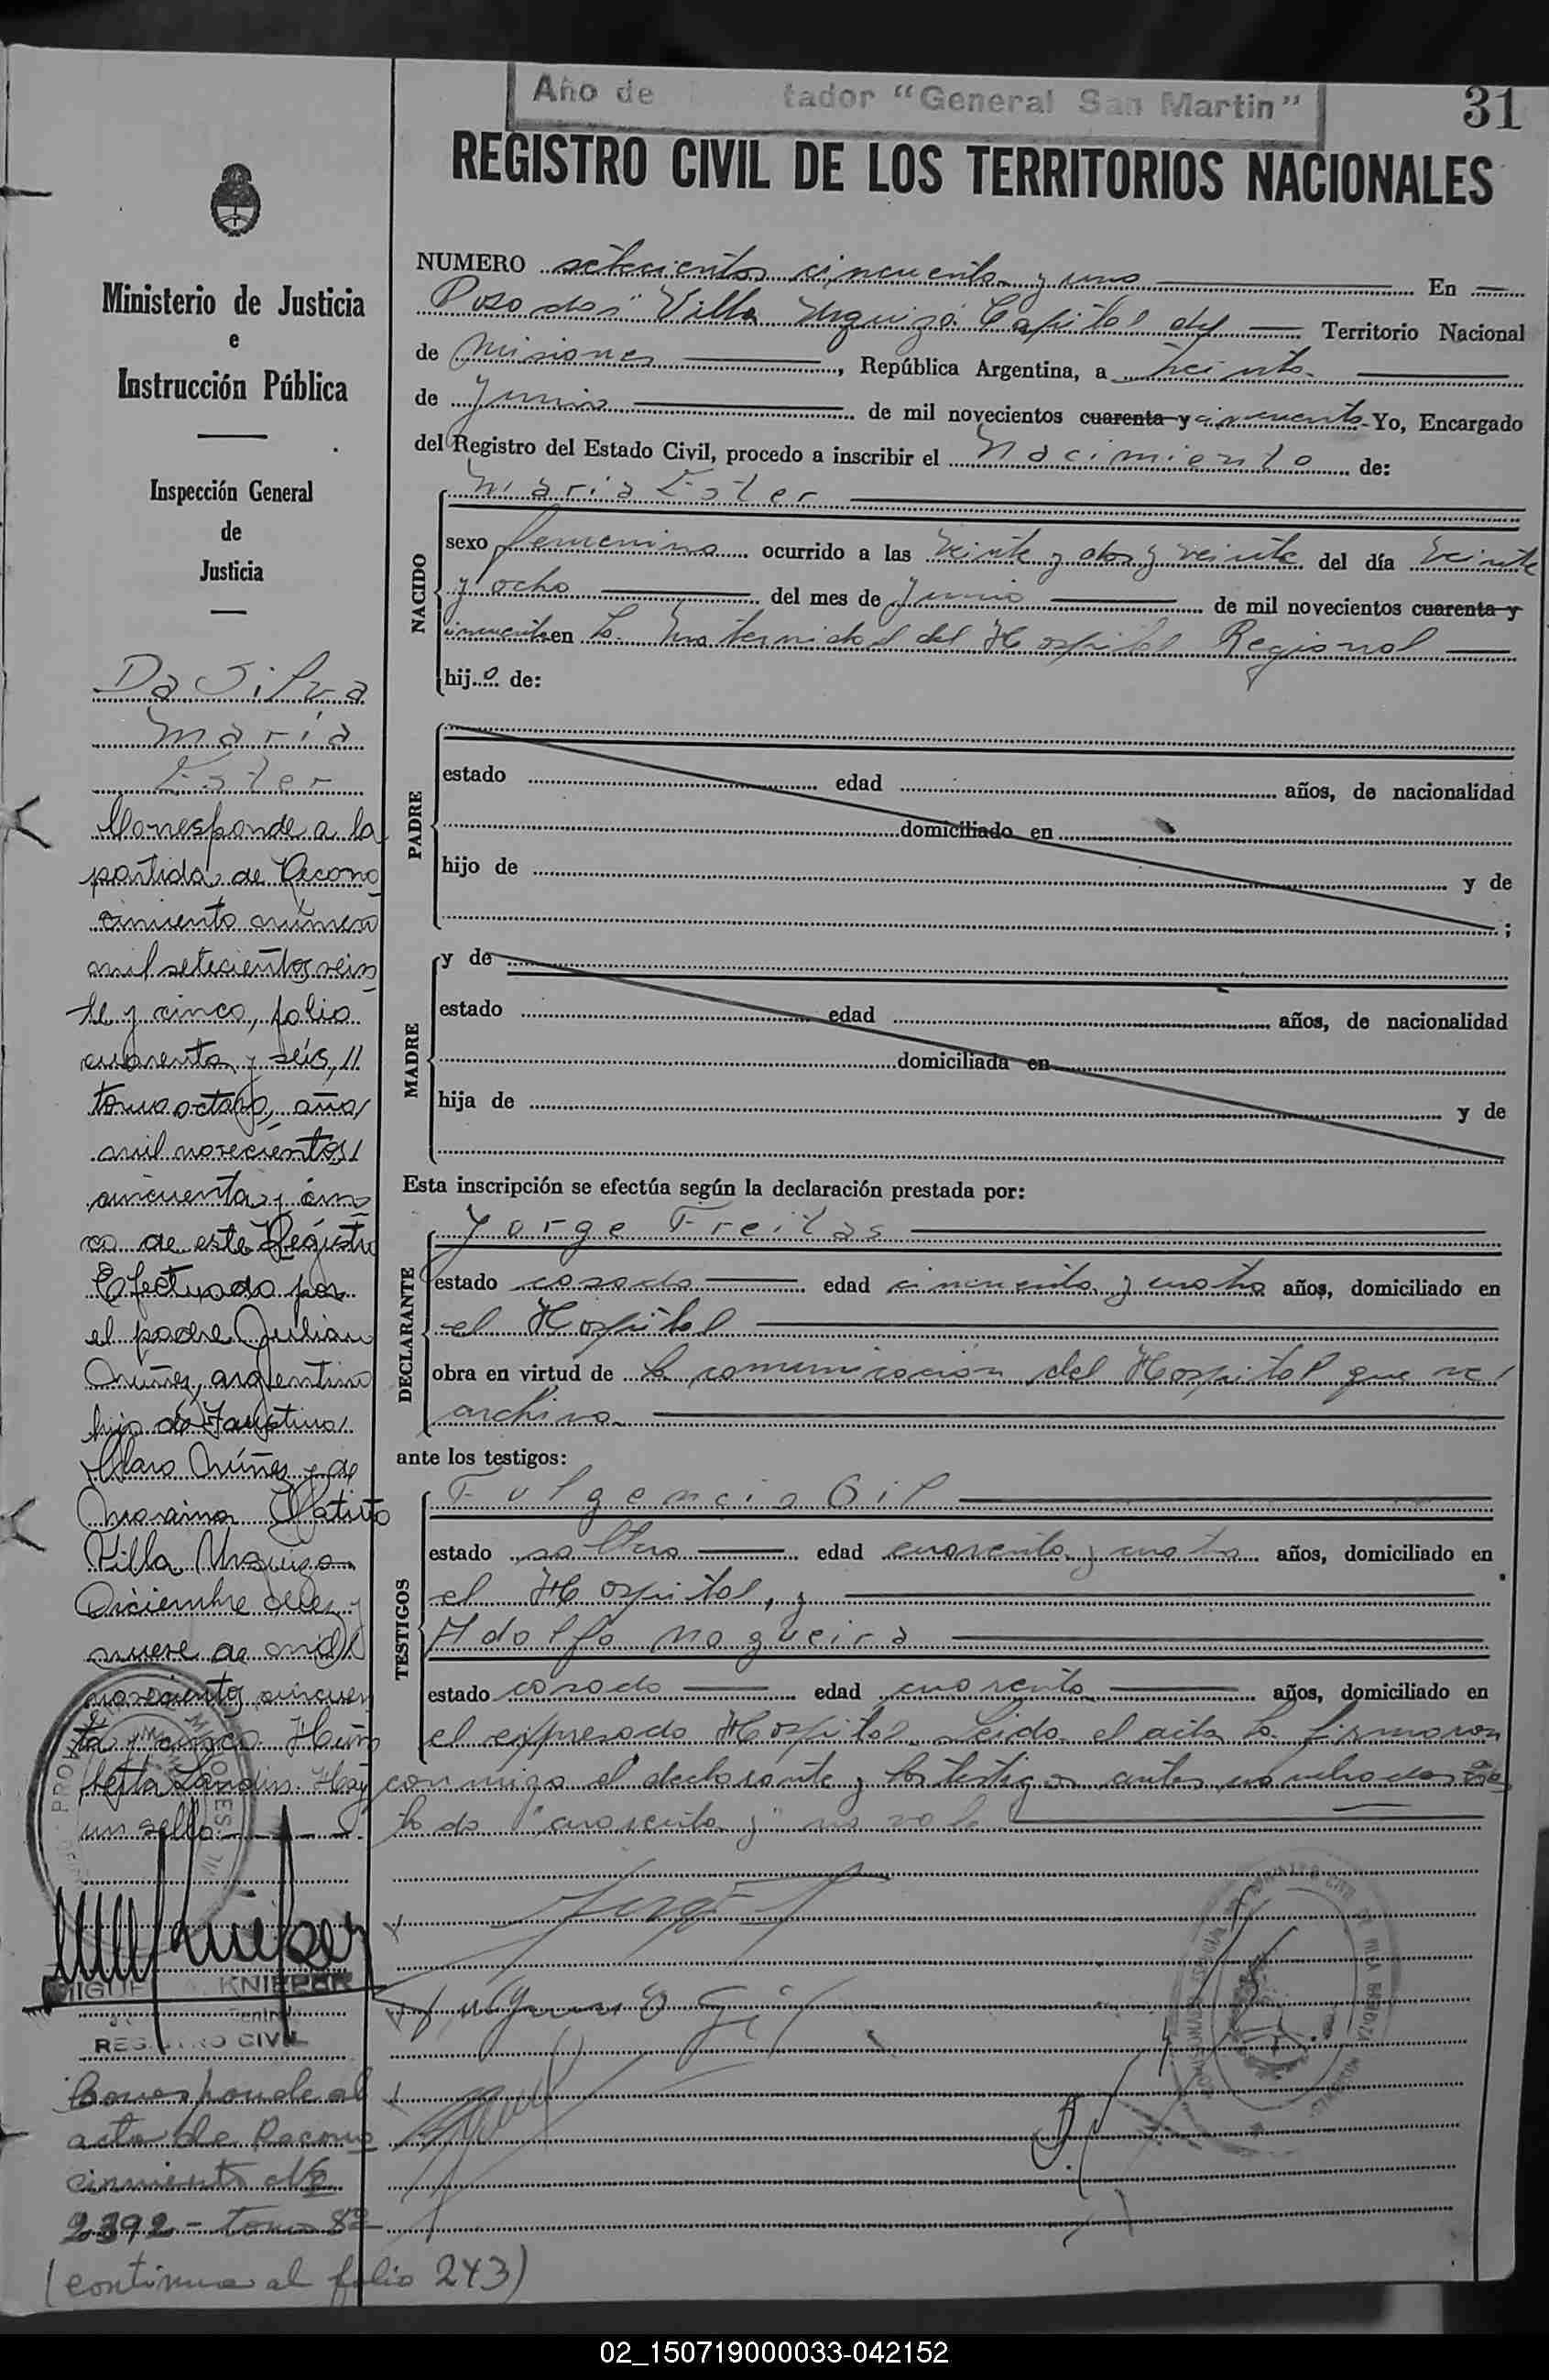 Año de tador "General San Martin"
31
REGISTRO CIVIL DE LOS TERRITORIOS NACIONALES
Ministerio de Justicia
e
Instrucción Pública
Inspección General
de
Justicia
Da Silva
María
Ester
Corresponde a la
partida de Recono
cimiento número
mil setecientos vein
te y cinco, folio
cuarenta y seis, //
tomo octavo, año/
mil novecientos/
cincuenta y cin
co de este Registro
Efectuado por
el padre Julian
Núñez, argentino
hijo de Faustino/
Claro Núñez y de
Villa Urquiza
Diciembre diez y
nueve de mil
novecientos cincuen
ta y cinco Hum
berto Landin. Hay
un sello.
MIGUE KNIEPER
REG RO CIVIL
Corresponde al
acta de Recono
cimiento Nº
2392 - tomo 8º
(continua al folio 243)
NUMERO setecientos cincuenta y uno En
Posadas "Villa Urquiza Capital del Territorio Nacional
de Misiones, República Argentina, a treinta
de Junio de mil novecientos cuarenta y cincuenta Yo, Encargado
del Registro del Estado Civil, procedo a inscribir el Nacimiento de:
NACIDO
Maria Ester
sexo femenino ocurrido a las veinte y dos y veinte del día veinte
y ocho del mes de Junio de mil novecientos cuarenta y
cincuenta en la Maternidad del Hospital Regional
hij de:
PADRE
estado edad años, de nacionalidad
domiciliado en
hijo de y de
;
MADRE
y de
estado edad años, de nacionalidad
domiciliada en
hija de y de
Esta inscripción se efectúa según la declaración prestada por:
DECLARANTE
Jorge Freitas
estado casado edad cincuenta y cuatro años, domiciliado en
el Hospital
obra en virtud de la comunicación del Hospital que se
archiva
ante los testigos:
TESTIGOS
Fulgencio Gil
estado soltero edad cuarenta y cuatro años, domiciliado en
el Hospital, y
Adolfo Nogueira
estado casado edad cuarenta años, domiciliado en
el expresado Hospital. Leida el acta la firmaron
conmigo el declarante y los testigos antes nombrados
tado "cuarenta y" no vale
02_150719000033-042152